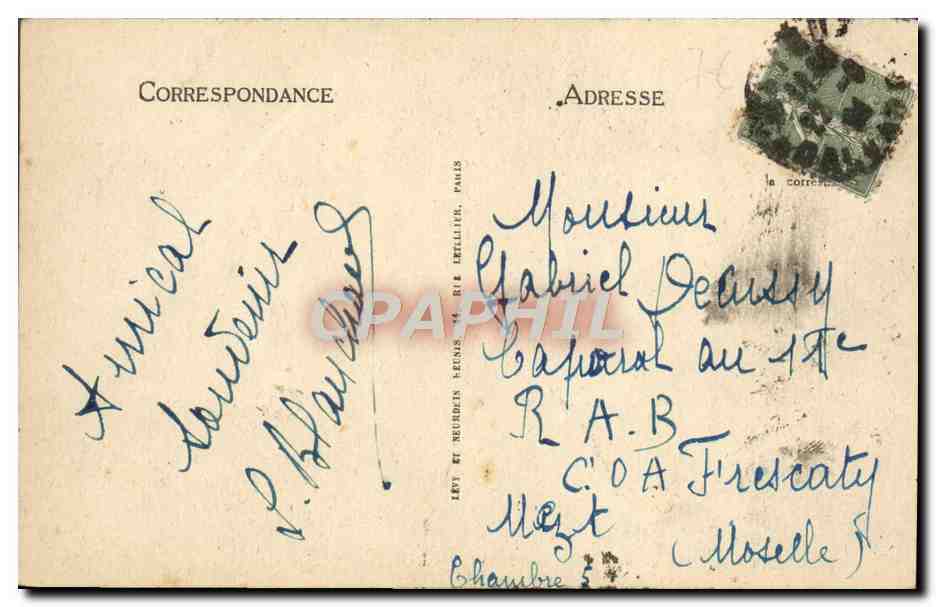 CORRESPONDANCE
ADRESSE
Amical
Souvenir
LÉVY ET NEURDEIN RÉUNIS, 44, RUE LETELLIER, PARIS
CPAPHIL
Monsieur
Gabriel
Caporal au
R A.B
C O A Frescaty
Metz
(Moselle)
Chambre 5